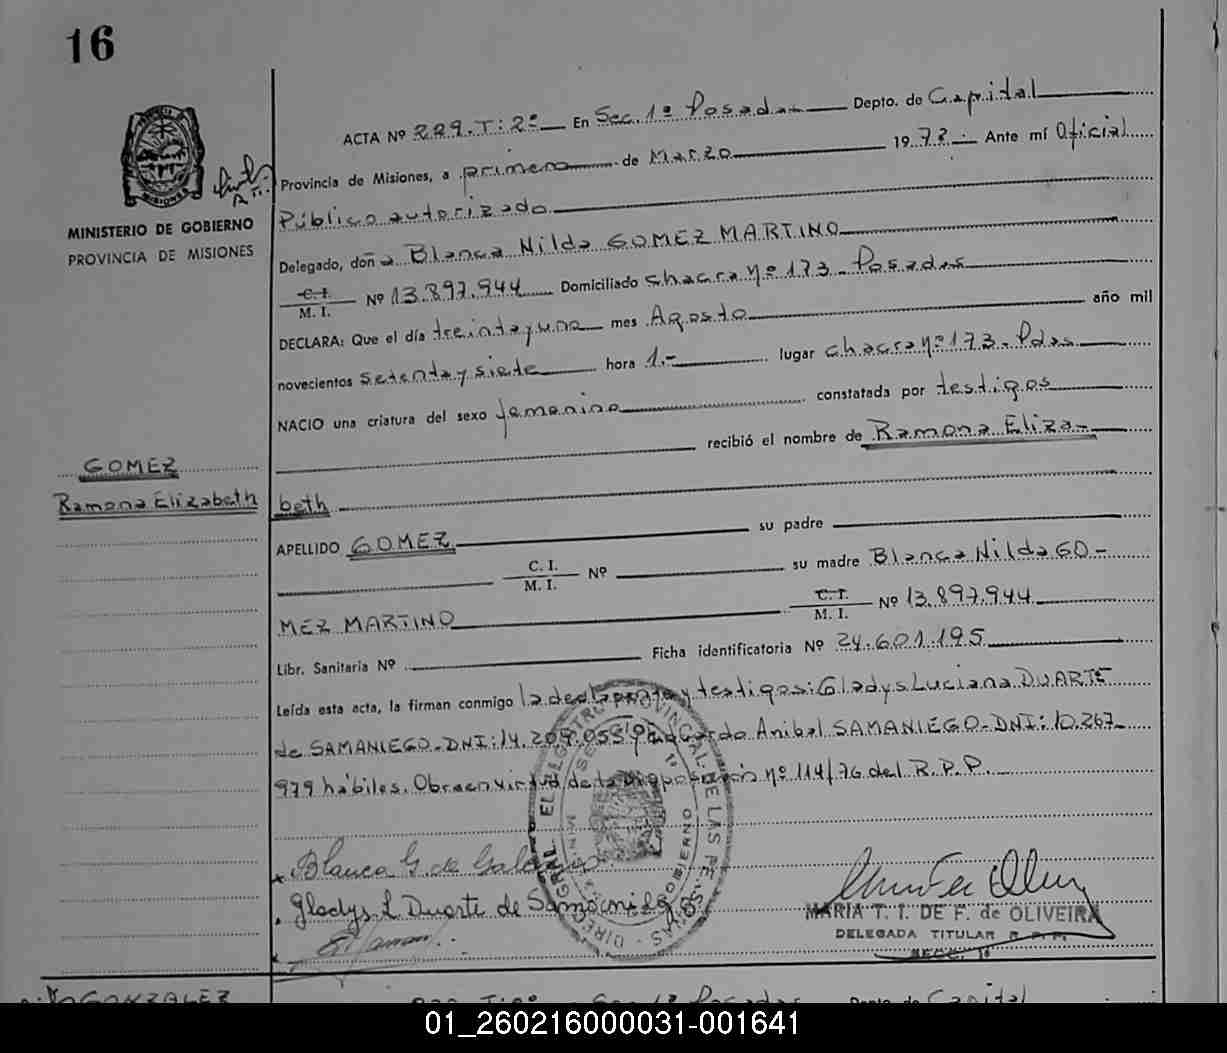 16
MINISTERIO DE GOBIERNO
PROVINCIA DE MISIONES
ACTA Nº 229.T:2º En Sec. 1ª Posadas Depto. de Capital
Provincia de Misiones, a primero de Marzo 1978. Ante mí Oficial
Público autorizado
Delegado, doña Blanca Nilda GOMEZ MARTINO
C.I. M. I. Nº 13.897.944 Domiciliado chacra nº 173 - Posadas
DECLARA: Que el día treinta y uno mes Agosto año mil
novecientos setenta y siete hora 1.- lugar chacra nº 173 - Pdas
NACIO una criatura del sexo femenino constatada por testigos
recibió el nombre de Ramona Eliza-
GOMEZ
Ramona Elizabeth
beth
APELLIDO GOMEZ su padre
C. I. M. I. Nº su madre Blanca Nilda GO-
MEZ MARTINO C. I. M. I. Nº 13.897.944
Libr. Sanitaria Nº Ficha identificatoria Nº 24.601.195
Leída esta acta, la firman conmigo la declarante y testigos: Gladys Luciana DUARTE
de SAMANIEGO - DNI: 14.209.053 y Anibal SAMANIEGO - DNI: 10.267-
979 hábiles. Obra en virtud de la Disposición nº 114/76 del R.P.P.
Blanca G. de
Gladys L Duarte de Samaniego
MARIA T. I. DE F. de OLIVEIRA
DELEGADA TITULAR R. P. P.
SECC. 1ª
GONZALEZ
229 T:2º Sec 1ª Posadas Depto. de Capital
01_260216000031-001641